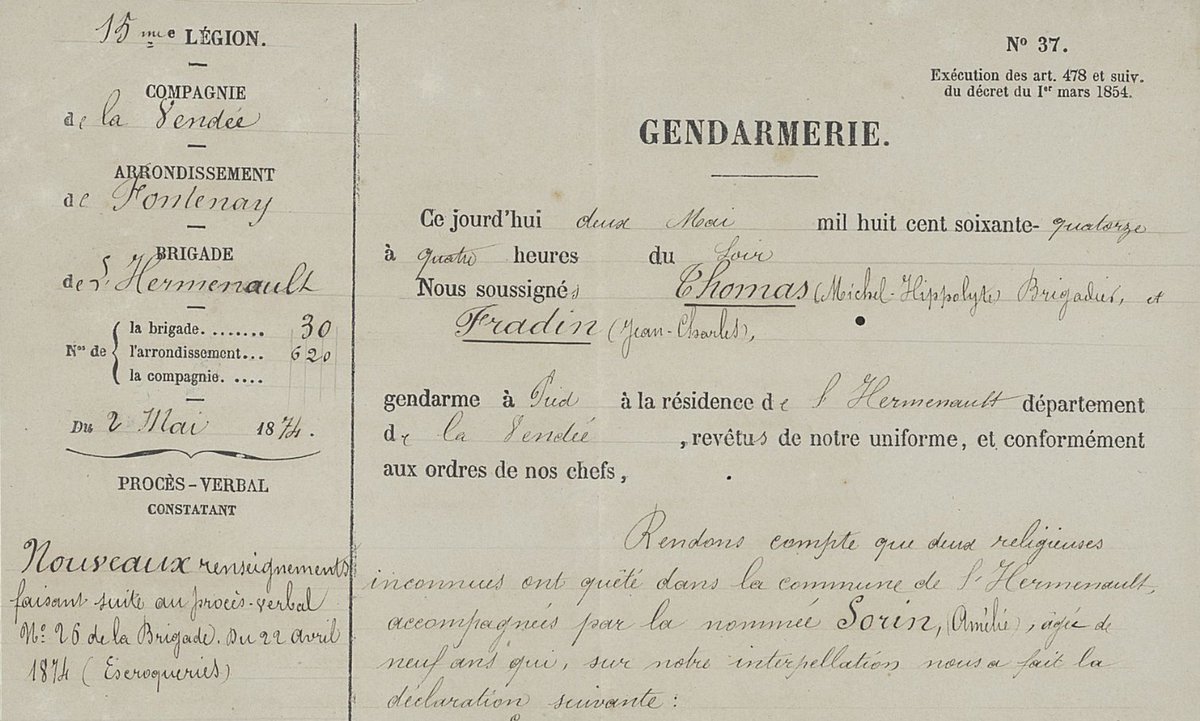 15me LÉGION.
COMPAGNIE
de la Vendée
ARRONDISSEMENT
de Fontenay
BRIGADE
de l'Hermenault
Nos de
la brigade........ 30
l'arrondissement... 620
la compagnie. ....
Du 2 Mai 1874.
PROCÈS-VERBAL
CONSTATANT
Nouveaux renseignements
faisant suite au procès-verbal
No. 26 de la Brigade. Du 22 avril
1874 (Escroqueries)
No 37.
Exécution des art. 478 et suiv.
du décret du 1er mars 1854.
GENDARMERIE.
Ce jourd'hui deux Mai mil huit cent soixante-quatorze
à quatre heures du soir
Nous soussignés Thomas (Michel-Hippolyte) Brigadier, et
Fradin (Jean-Charles),
gendarme à Pied à la résidence de l'Hermenault département
de la Vendée, revêtus de notre uniforme, et conformément
aux ordres de nos chefs,
Rendons compte que deux religieuses
inconnues ont quêté dans la commune de l'Hermenault,
accompagnées par la nommée Sorin, (Amélie), âgée de
neuf ans qui, sur notre interpellation nous a fait la
déclaration suivante: